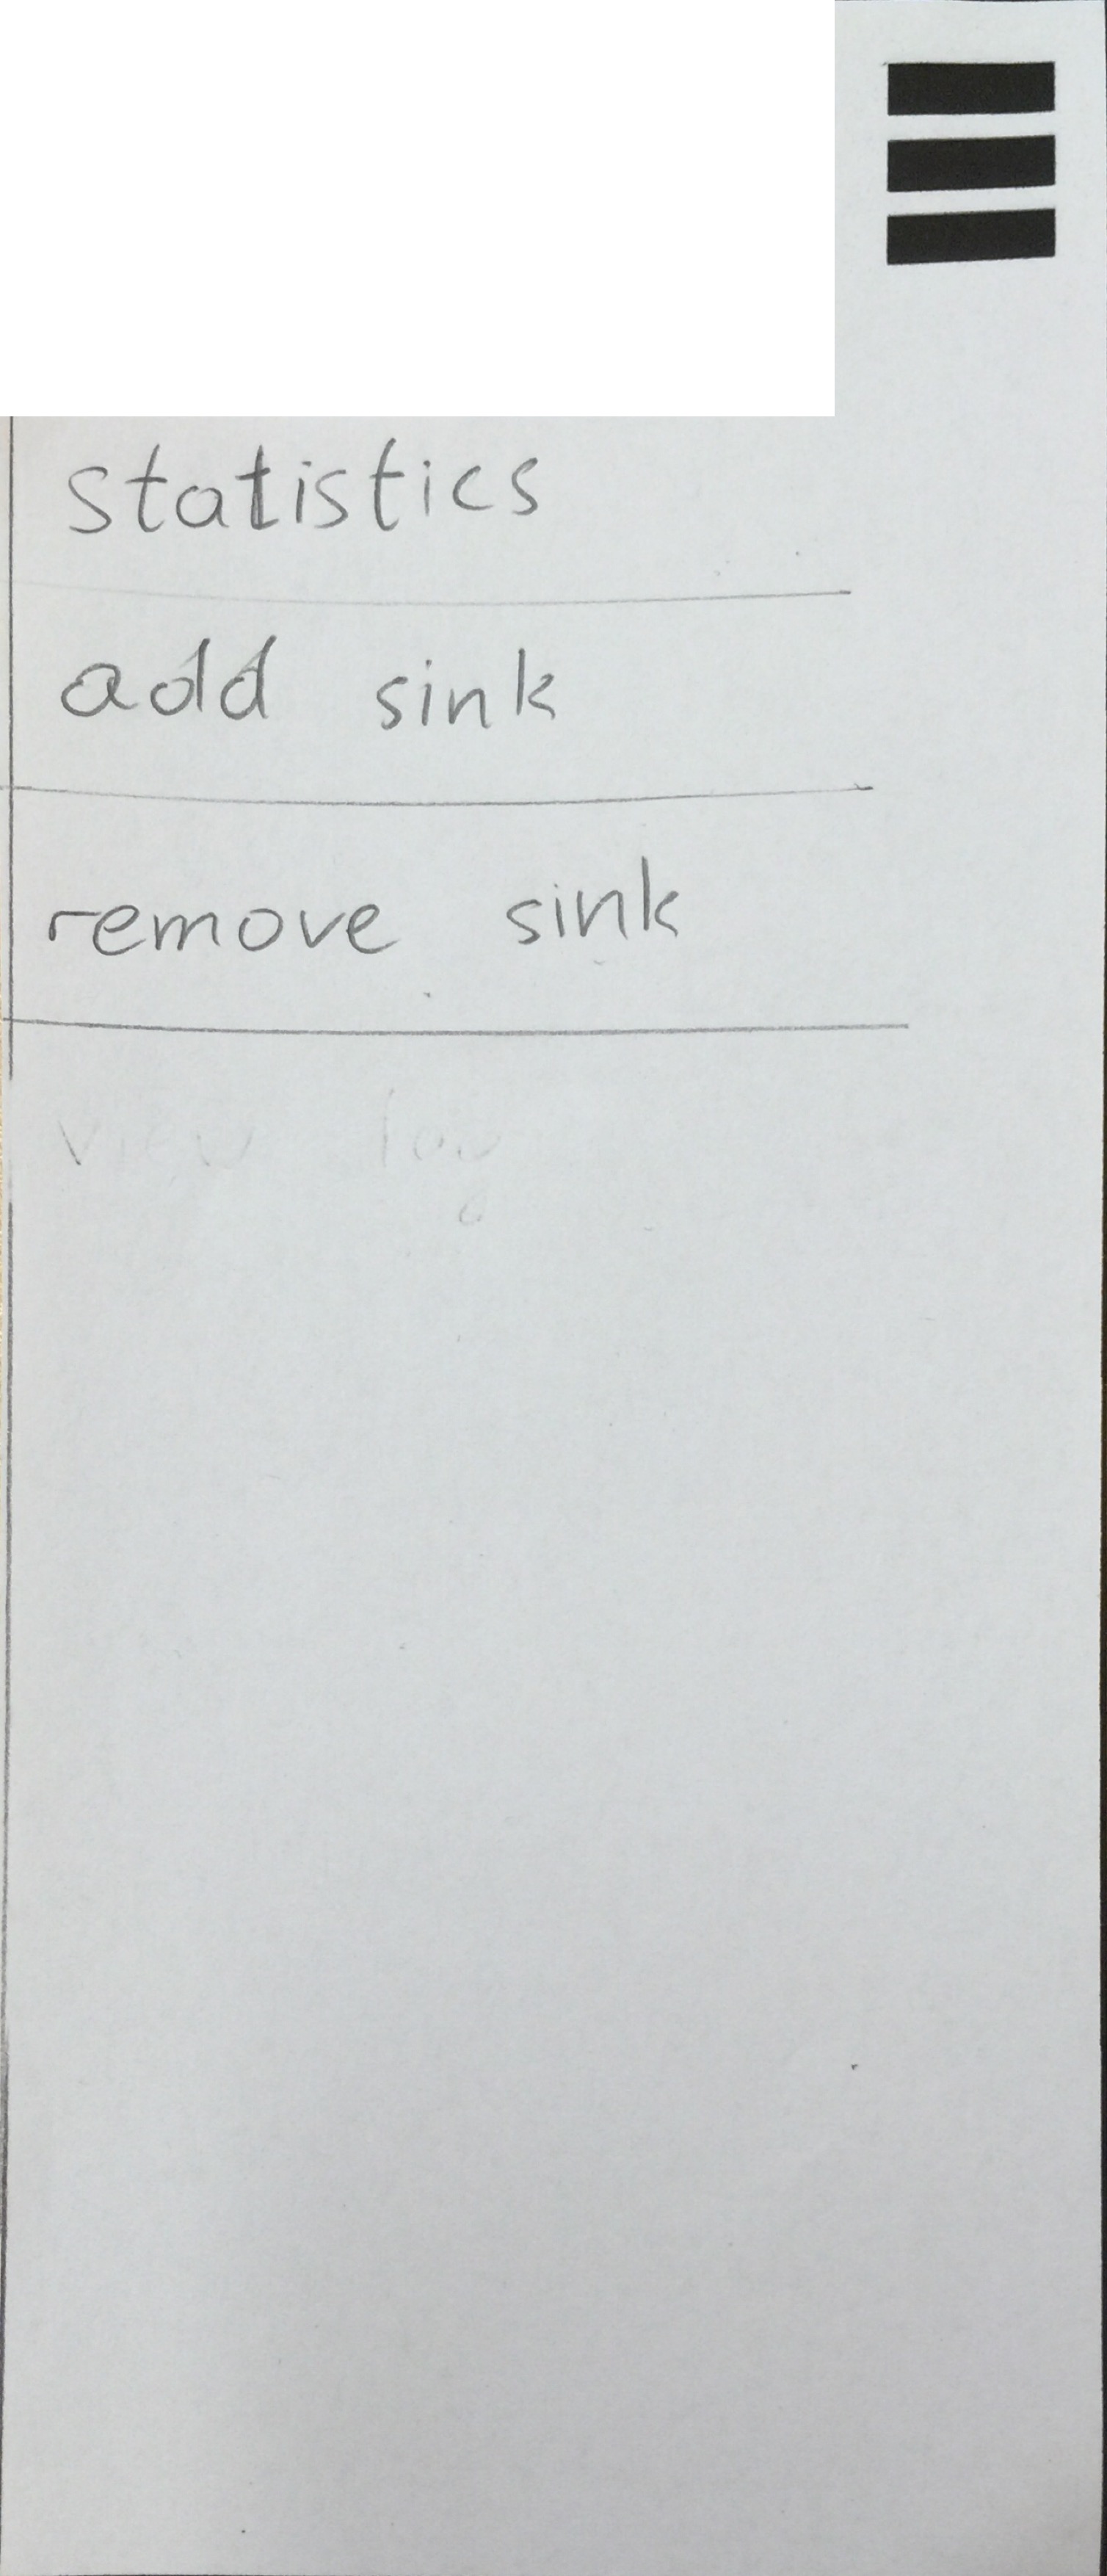 statistics
add sink
remove sink
view log